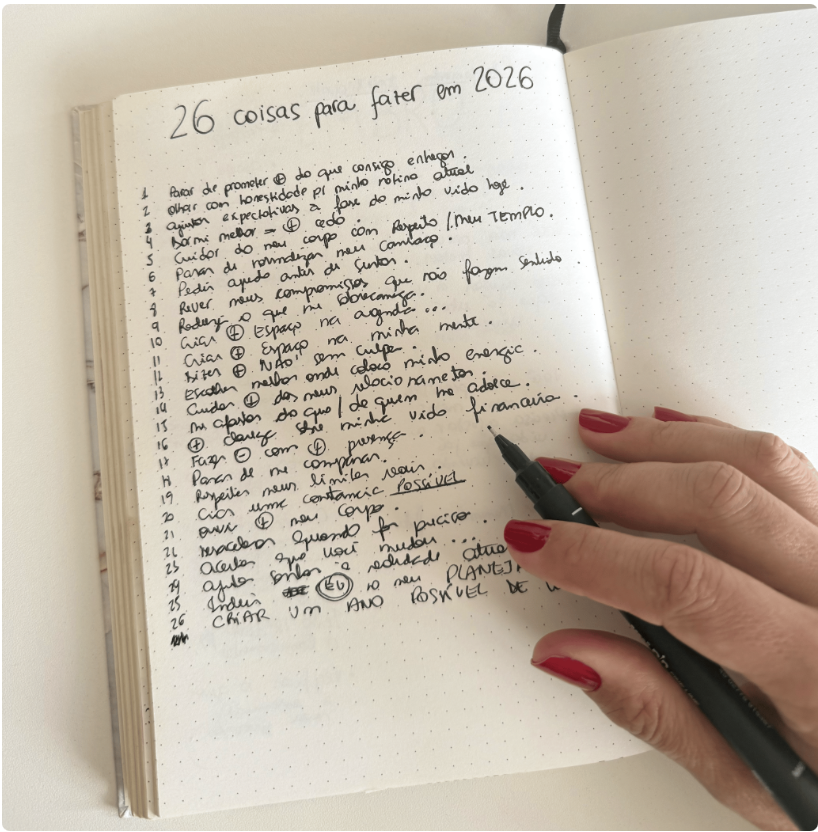 26 coisas para fazer em 2026
1 Parar de prometer ⊕ do que consigo entregar.
2 olhar com honestidade p/ minha rotina atual
3 ajustar expectativas à fase da minha vida hoje.
4 Dormi melhor = ⊕ cedo.
5 Cuidar do meu corpo com Respeito / meu TEMPO.
6 Parar de normalizar meu cansaço.
7 Pedir ajuda antes de surtar.
8 Rever meus compromissos que não fazem sentido.
9 Reduzir o que me sobrecarrega.
10 Criar ⊕ Espaço na agenda...
11 Criar ⊕ Espaço na minha mente.
12 Dizer ⊕ "NÃO" sem culpa.
13 Escolher melhor onde coloco minha energia.
14 Cuidar ⊕ dos meus relacionamentos.
15 me afastar do que / de quem me adoece.
16 ⊕ clareza sobre minha vida financeira.
17 Fazer ⊖ com ⊕ presença.
18 Parar de me comparar.
19 Respeitar meus limites reais.
20 Criar uma constância POSSÍVEL
21 ouvir ⊕ meu corpo.
22 quando for preciso.
23 aceitar que você mudou...
24 ajustar sonhos à realidade
25 EU no meu
26 CRIAR UM ANO POSSÍVEL DE